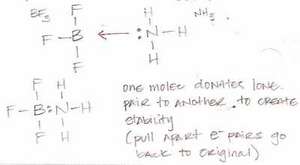 BF3 F H NH3
F-B ← :N-H
F H
F H
F-B:N-H
F H
one molec donates lone
pair to another to create
stability
(pull apart e- pairs go
back to original)